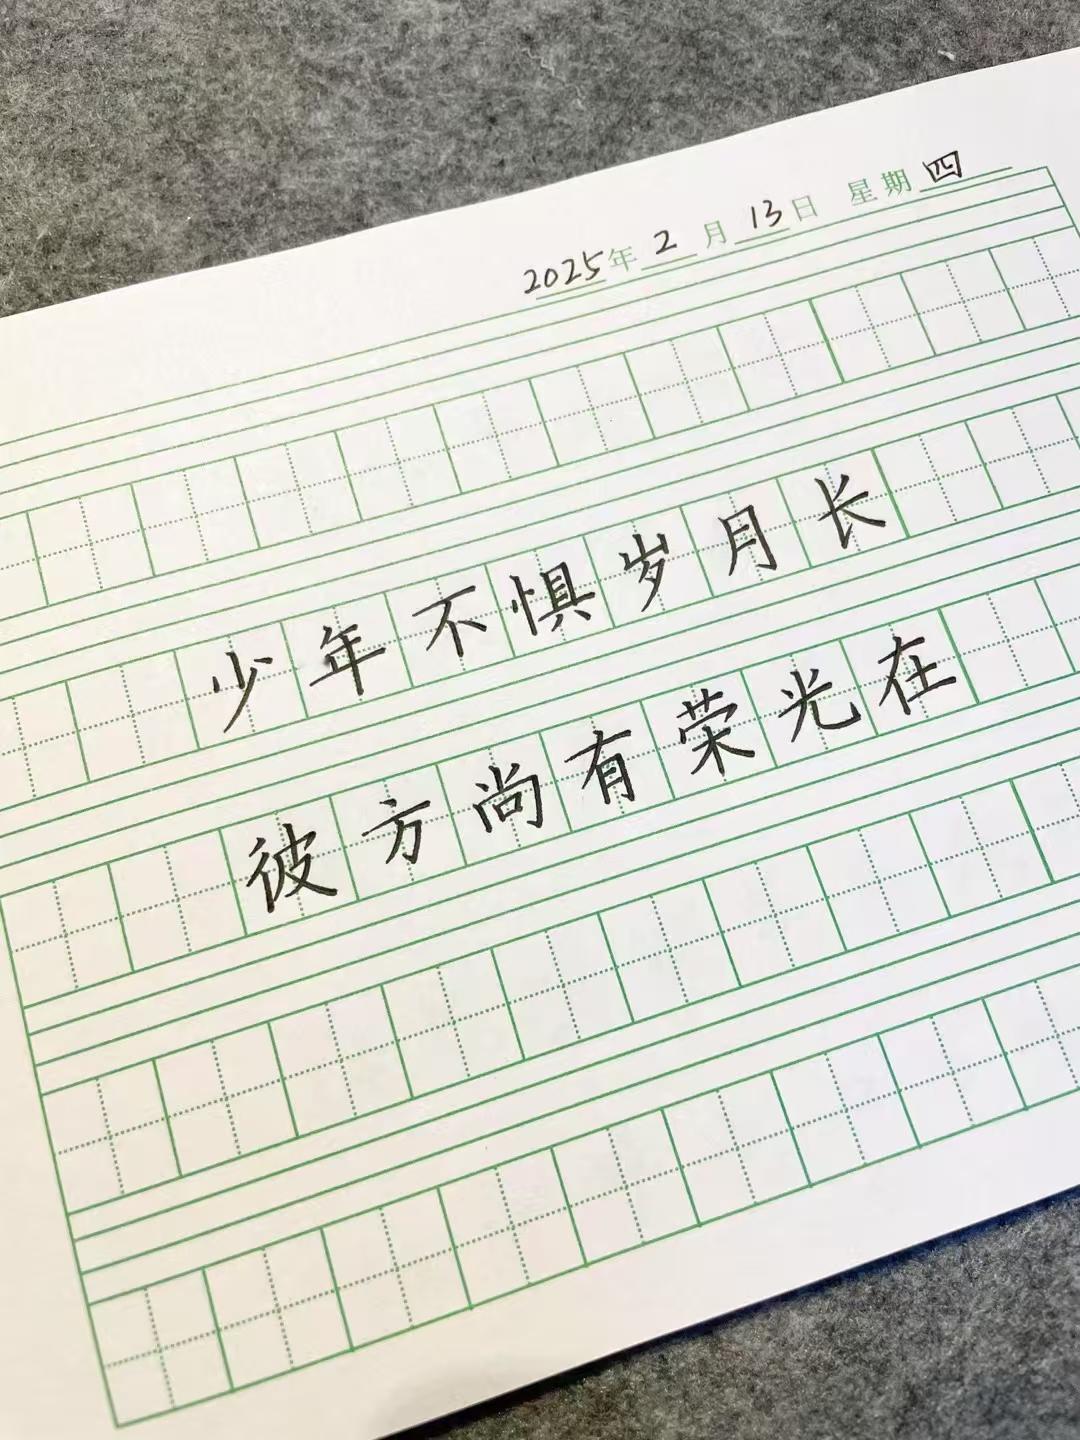 2025年2月13日 星期四
少年不惧岁月长
彼方尚有荣光在